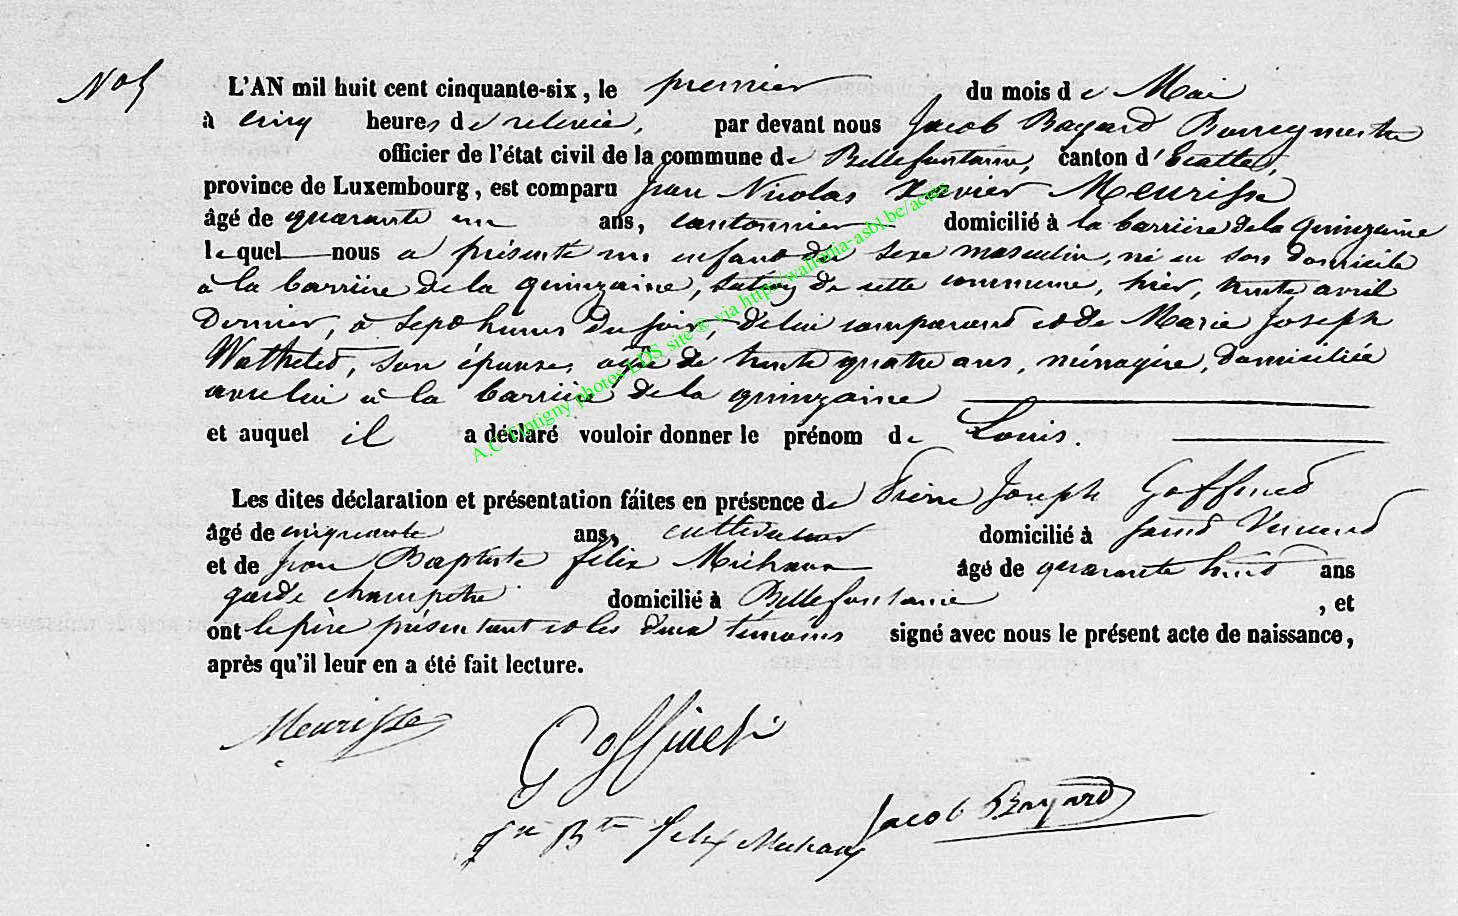 No 5
L'AN mil huit cent cinquante-six, le premier du mois de Mai
à cinq heures de relevée, par devant nous Jacob Bayard Bourgmestre
officier de l'état civil de la commune de Bellefontaine, canton d'Etalle,
province de Luxembourg, est comparu Jean Nicolas Xavier Meurisse
âgé de quarante un ans, cantonnier domicilié à la barrière de la quinzaine
lequel nous a présenté un enfant du sexe masculin, né en son domicile
à la barrière de la quinzaine, de cette commune, hier, trente avril
dernier, à sept heures du soir, de lui comparant et de Marie Joseph
Wathelet, son épouse, agée de trente quatre ans, ménagère, domiciliée
avec lui à la barrière de la quinzaine
et auquel il a déclaré vouloir donner le prénom de Louis.
Les dites déclaration et présentation faites en présence de Pierre Joseph Goffinet
âgé de cinquante ans, cultivateur domicilié à Saint Vincent
et de Jean Baptiste félix Michaux âgé de quarante huit ans
garde champetre domicilié à Bellefontaine , et
ont le père présentant et les deux témoins signé avec nous le présent acte de naissance,
après qu'il leur en a été fait lecture.
Meurisse
Goffinet
Jn Bte felix Michaux
Jacob Bayard
A.C Tintigny photos LDS site® via http://wallonia-asbl.be/actes